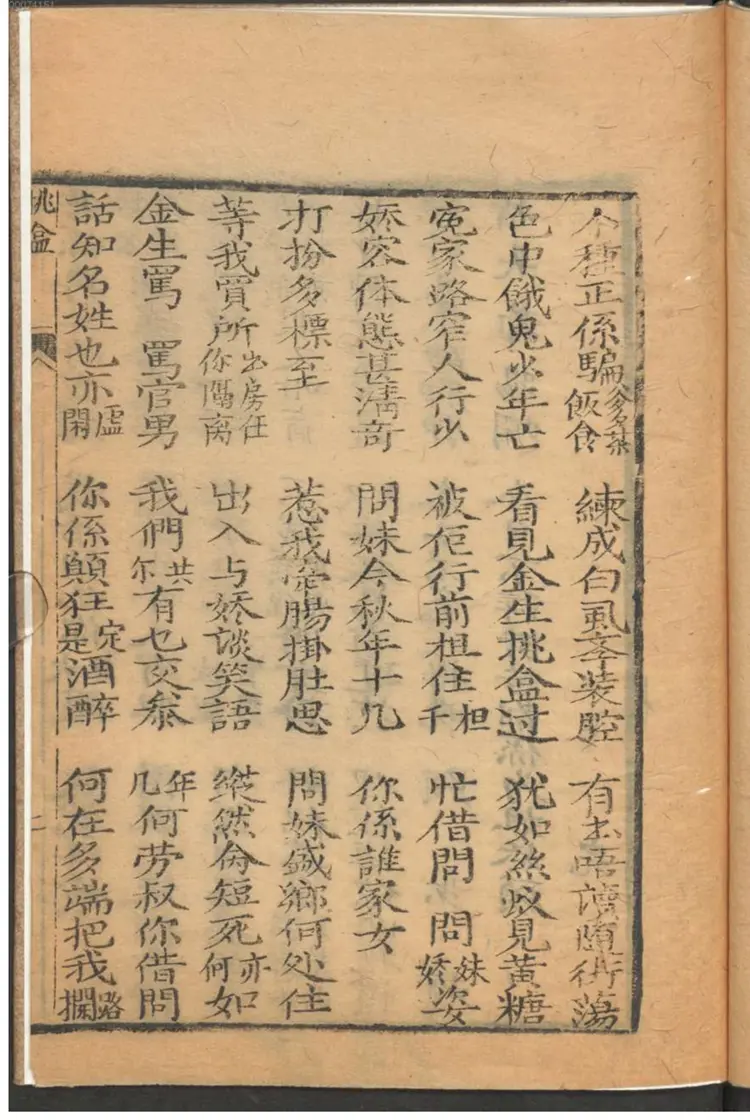 个種正係騙爹茶飯食 練成白虱辛装腔 有书唔讀随街蕩
色中餓鬼少年亡 看見金生挑盒过 犹如絲蚁見黄糖
寃家路窄人行少 被佢行前担住担千 忙借問 問妹娇姿
娇容体態甚清奇 問妹今秋年十几 你係誰家女
打扮多標至 惹我牵腸掛肚思 問妹盛鄉何处住
等我買所出房任你隔离 出入与娇談笑語 縱然命短死亦何如
金生罵 罵官男 我們共尔有乜交叅 年几何劳叔你借問
話知名姓也亦虚閑 你係顛狂定是酒醉 何在多端把我攔路
挑盒